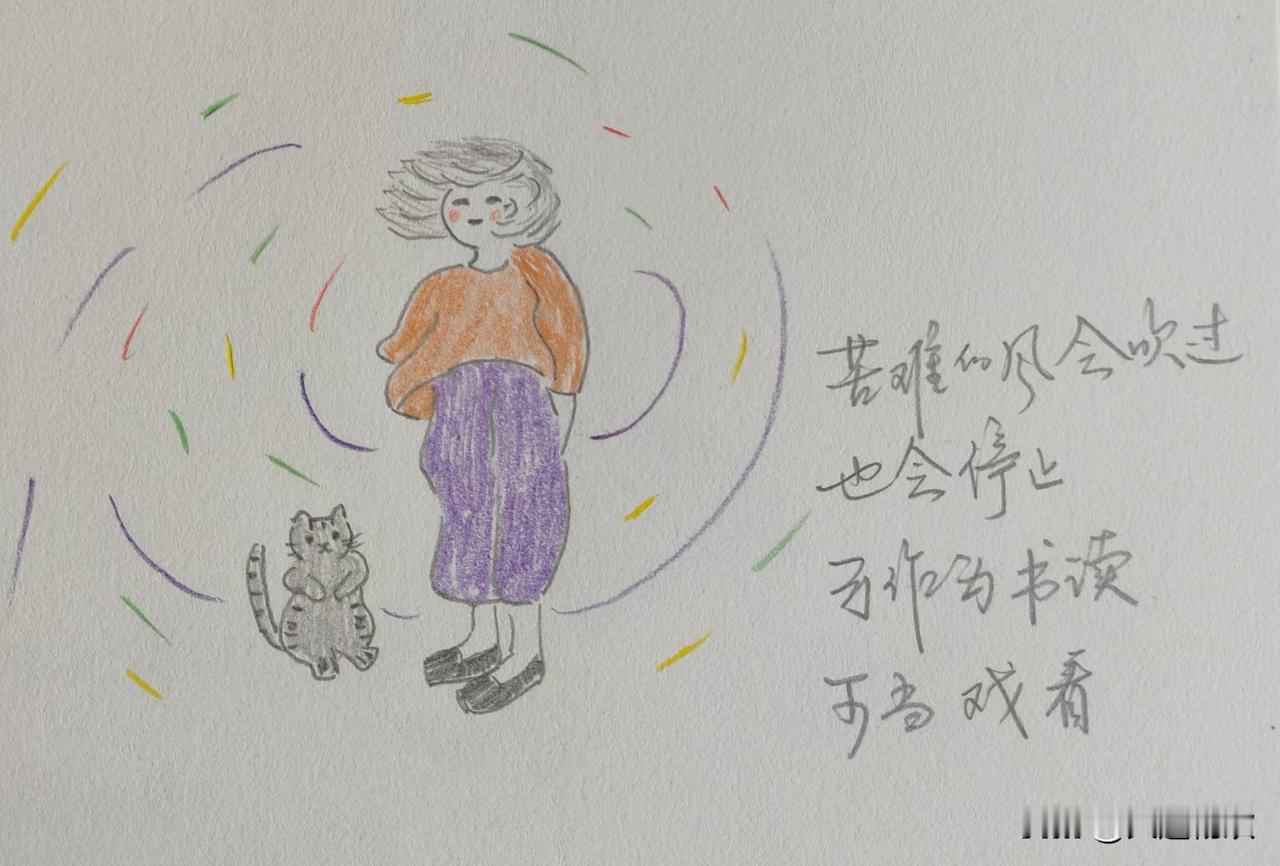 苦难的风会吹过
也会停止
可作为书读
可当戏看